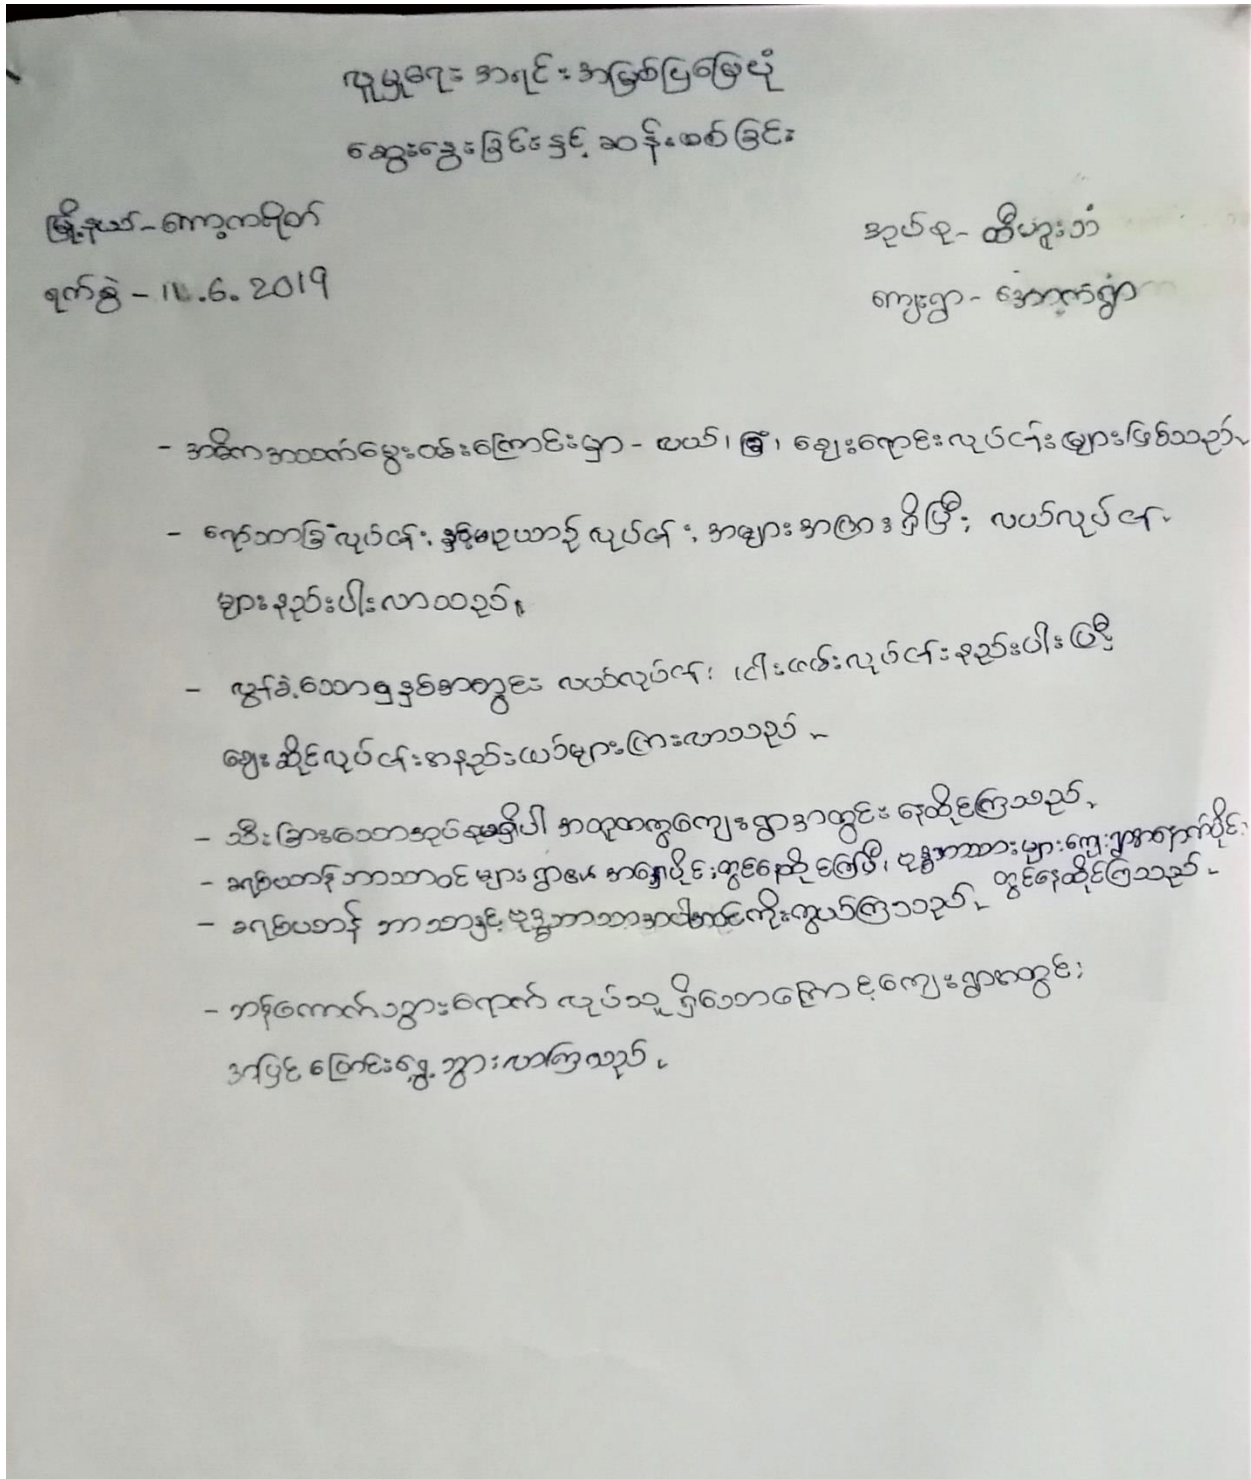 လူမှုရေး အရင်းအမြစ်ပြမြေပုံ
ဆွေးနွေးခြင်းနှင့် ဆန်းစစ်ခြင်း
မြို့နယ် - ကော့ကရိတ်
အုပ်စု - ထီဟူးသံ
ရက်စွဲ - 11.6.2019
ကျေးရွာ - အောက်ရွာ
- အဓိကအသက်မွေးဝမ်းကြောင်းမှာ - လယ်၊ ခြံ၊ ဈေးရောင်းလုပ်ငန်းများဖြစ်သည်။
- ရော်ဘာခြံလုပ်ငန်း၊ နှင့် ဥယာဉ်လုပ်ငန်း၊ အများအပြားရှိပြီး လယ်လုပ်ငန်း
များနည်းပါးလာသည်။
- လွန်ခဲ့သော ၅ နှစ်အတွင်း လယ်လုပ်ငန်း ငါးဖမ်းလုပ်ငန်းနည်းပါးပြီး
ဈေးဆိုင်လုပ်ငန်းအနည်းငယ်များပြားလာသည်။
- သီးခြားသောအုပ်စုမရှိပါ အတူတကွကျေးရွာအတွင်း နေထိုင်ကြသည်။
- ခရစ်ယာန်ဘာသာဝင်များ ရွာ၏ အရှေ့ပိုင်းတွင်နေထိုင်ကြပြီး၊ ဗုဒ္ဓဘာသာများကျေးရွာအနောက်ပိုင်း
တွင်နေထိုင်ကြသည်။
- ခရစ်ယာန် ဘာသာနှင့် ဗုဒ္ဓဘာသာ ကိုးကွယ်ကြသည်။
- ဘန်ကောက်သွားရောက် လုပ်သူ ရှိသောကြောင့်ကျေးရွာအတွင်း
အပြင် ပြောင်းရွှေ့ သွားလာကြသည်။